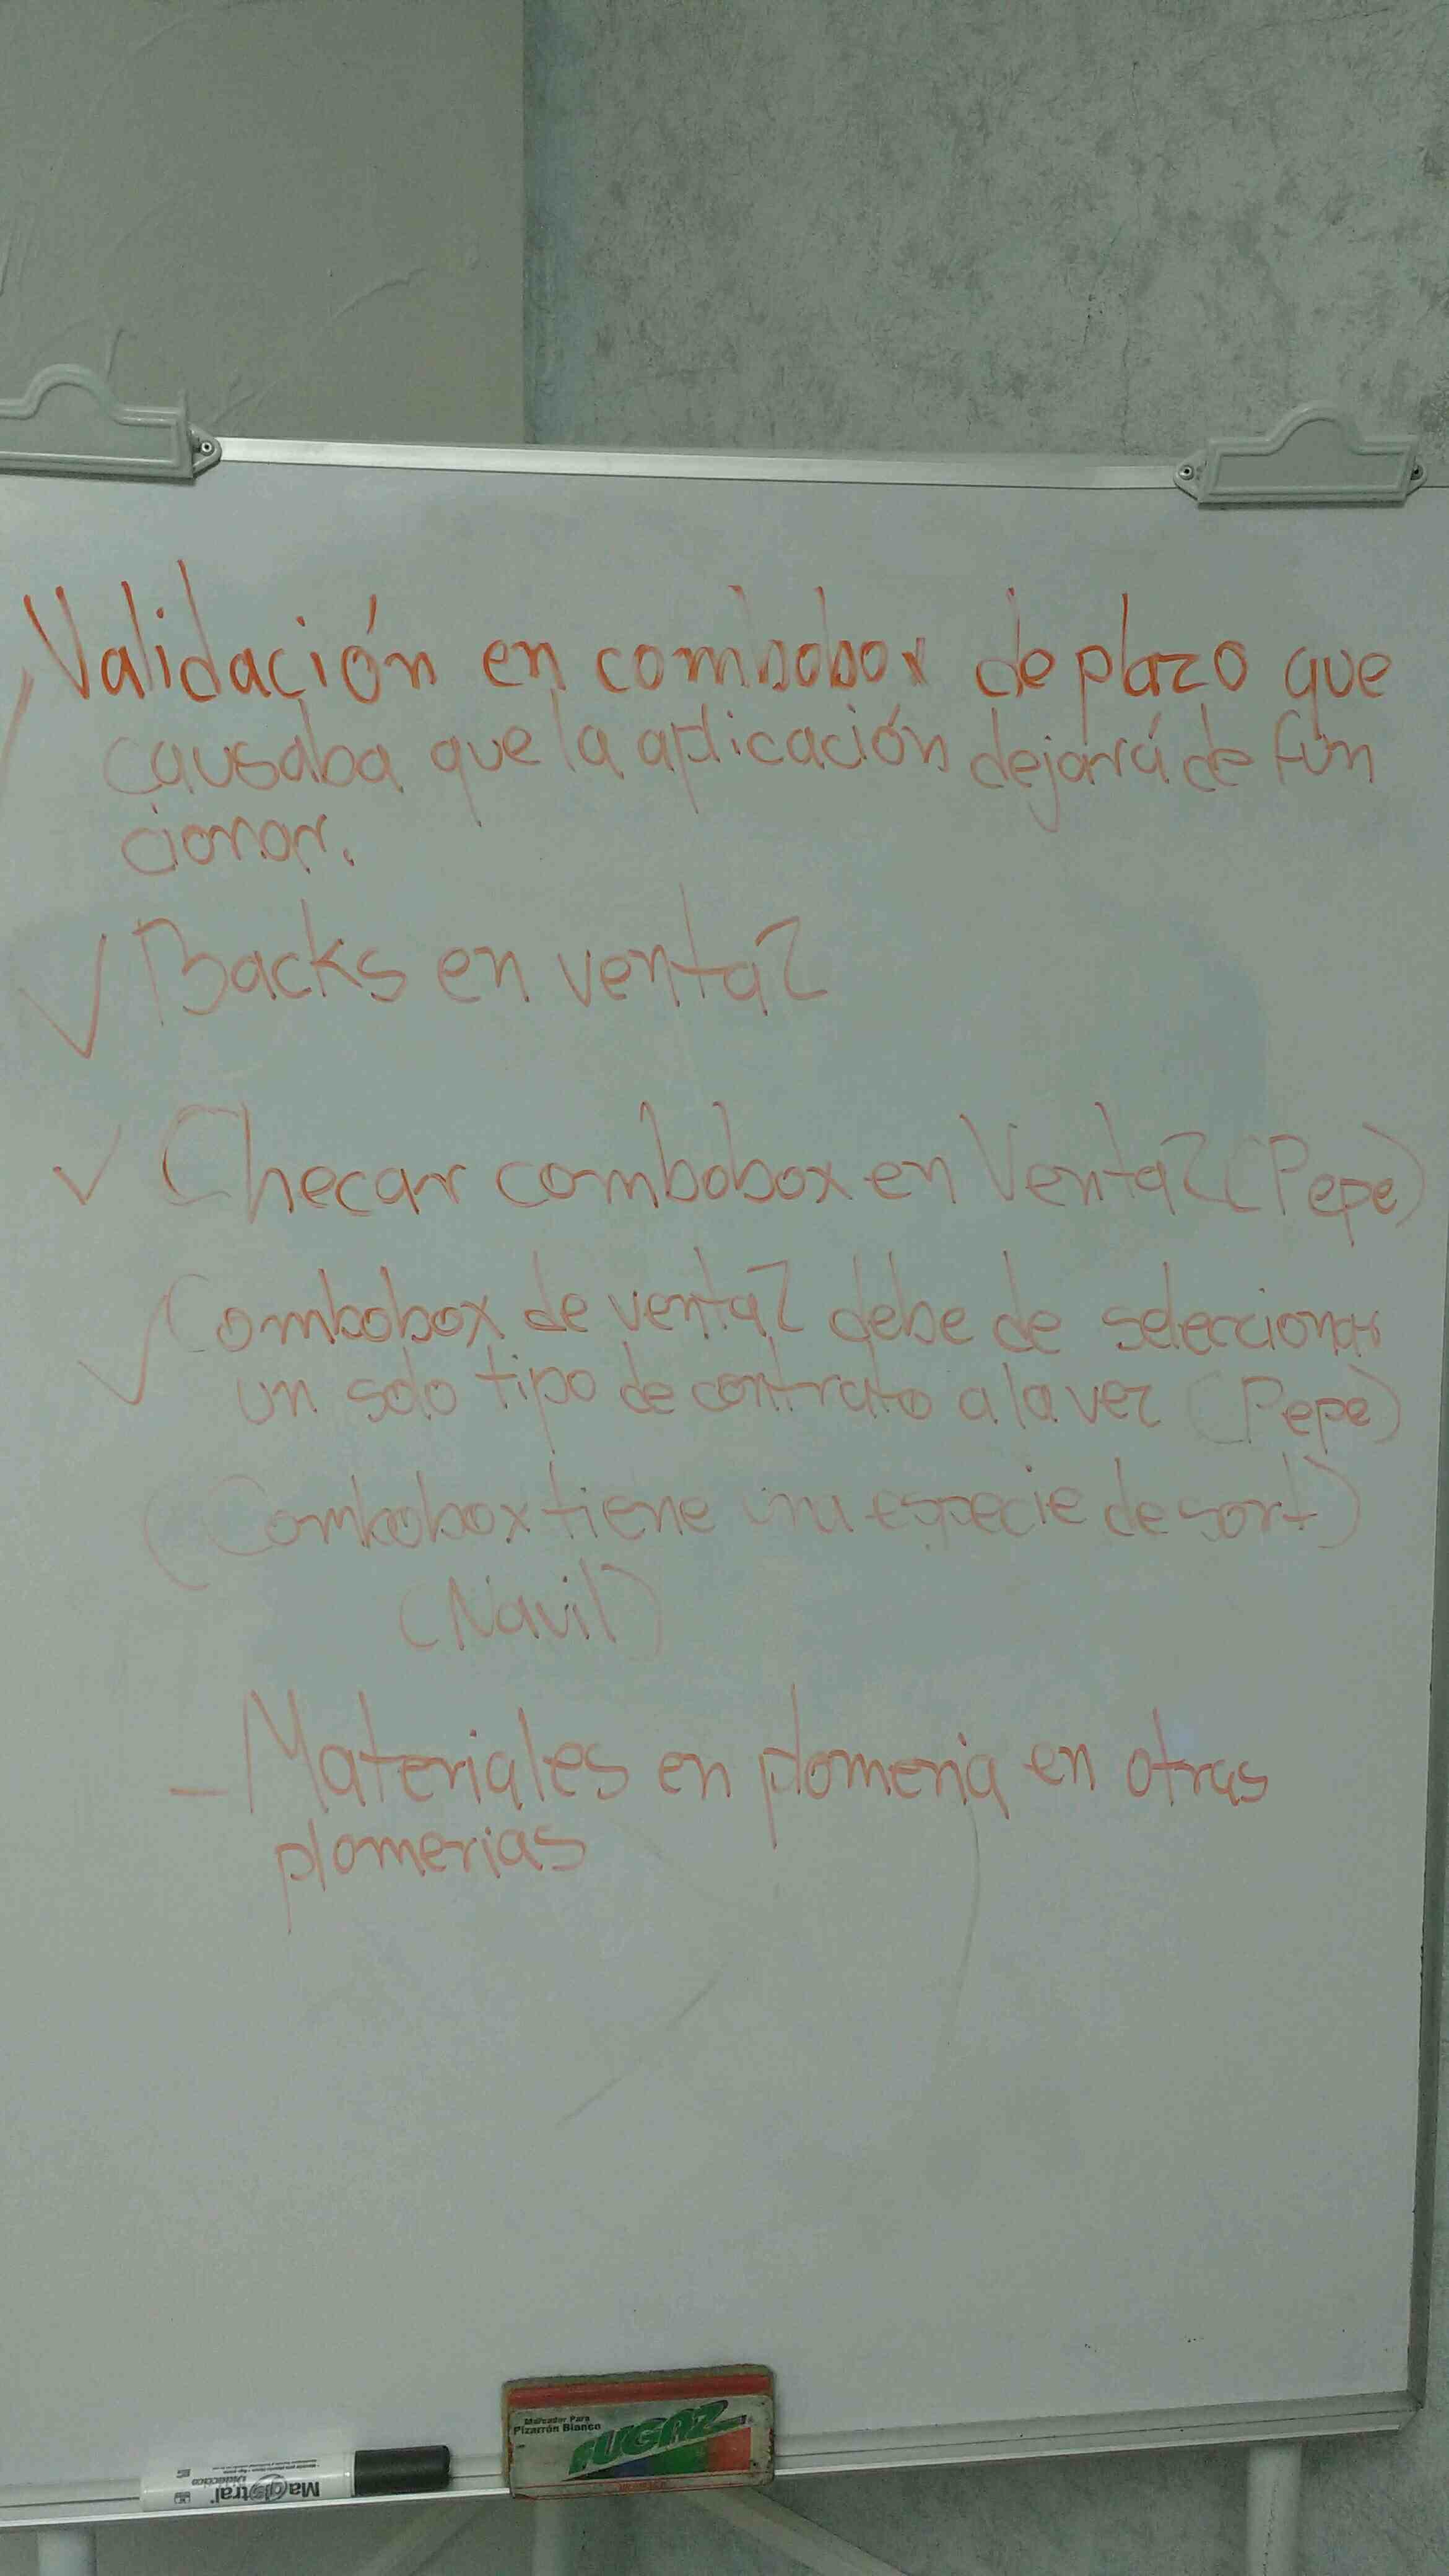 Validación en combobox de plazo que
causaba que la aplicación dejará de fun
cionar.
✓ Backs en venta2
✓ Checar combobox en Venta2 (Pepe)
✓ Combobox de venta2 debe de seleccionar
un solo tipo de contrato a la vez (Pepe)
(Combobox tiene una especie de sort)
(Navil)
- Materiales en plomeria en otras
plomerias
Marcador Para
Pizarrón Blanco
FUGAZ
Magistral
Didáctico